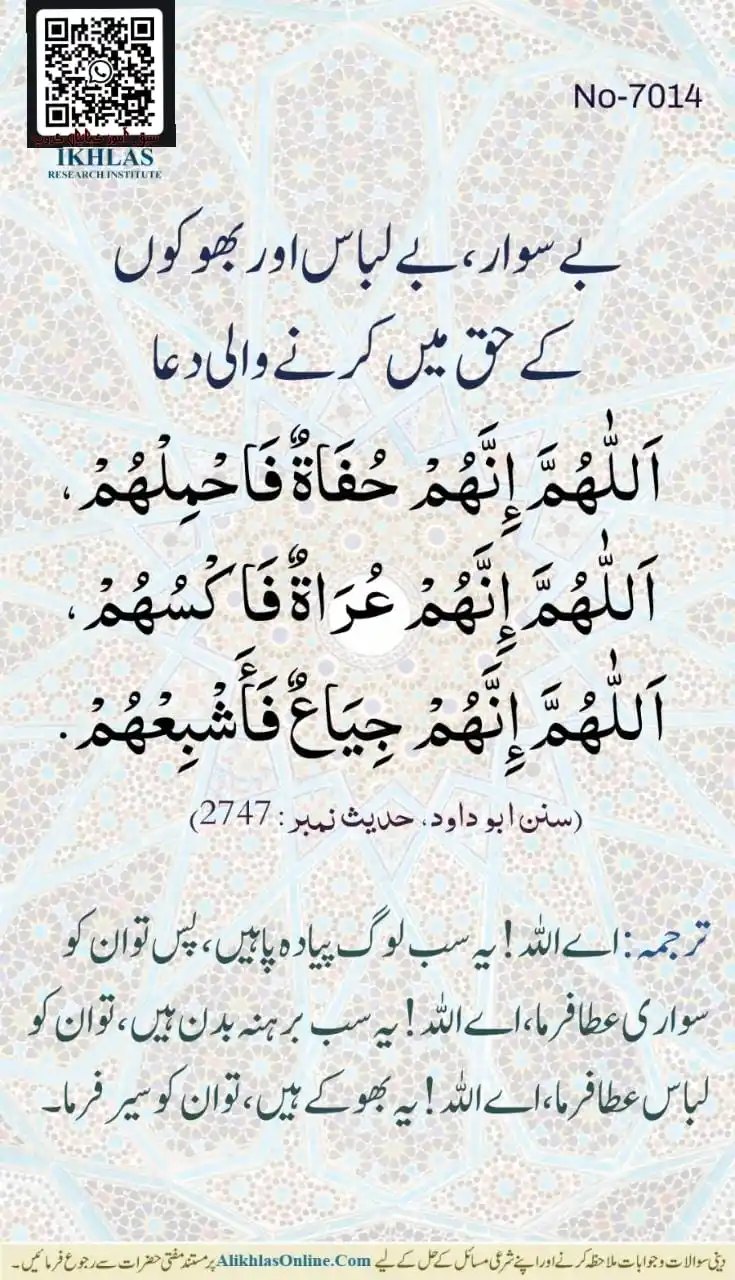 No-7014
IKHLAS
RESEARCH INSTITUTE
بے سوار، بے لباس اور بھوکوں
کے حق میں کرنے والی دعا
اَللّٰهُمَّ إِنَّهُمْ حُفَاةٌ فَاحْمِلْهُمْ،
اَللّٰهُمَّ إِنَّهُمْ عُرَاةٌ فَاكْسُهُمْ،
اَللّٰهُمَّ إِنَّهُمْ جِيَاعٌ فَأَشْبِعْهُمْ.
(سنن ابو داود، حدیث نمبر: 2747)
ترجمہ: اے اللہ! یہ سب لوگ پیادہ پا ہیں، پس تو ان کو
سواری عطا فرما، اے اللہ! یہ سب برہنہ بدن ہیں، تو ان کو
لباس عطا فرما، اے اللہ! یہ بھوکے ہیں، تو ان کو سیر فرما۔
دینی سوالات و جوابات ملاحظہ کرنے اور اپنے شرعی مسائل کے حل کے لیے AlikhlasOnline.Com پر مستند مفتی حضرات سے رجوع فرمائیں۔